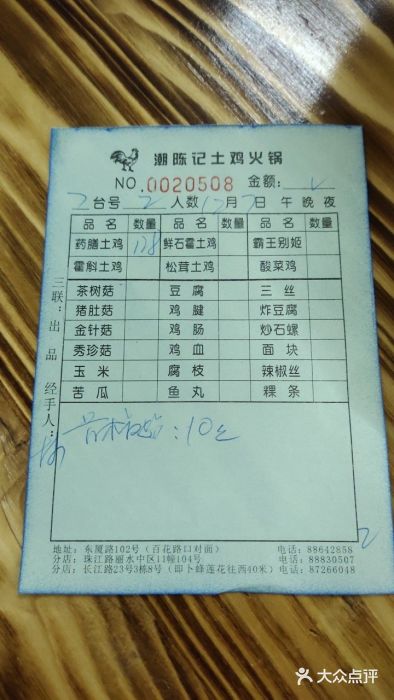 潮陈记土鸡火锅
NO.0020508 金额：
2台号 2人数 12月7日 午 晚 夜
品名 数量 品名 数量 品名 数量
药膳土鸡 128 鲜石霍土鸡 霸王别姬
霍斛土鸡 松茸土鸡 酸菜鸡
茶树菇 豆腐 三丝
猪肚菇 鸡腱 炸豆腐
金针菇 鸡肠 炒石螺
秀珍菇 鸡血 面块
玉米 腐枝 辣椒丝
苦瓜 鱼丸 粿条
三联：出品
经手人：
：10元
地址：东厦路102号（百花路口对面） 电话：88642858
分店：珠江路丽水中区11幢104号 电话：88830507
分店：长江路23号3栋8号（即卜蜂莲花往西40米） 电话：87266048
大众点评